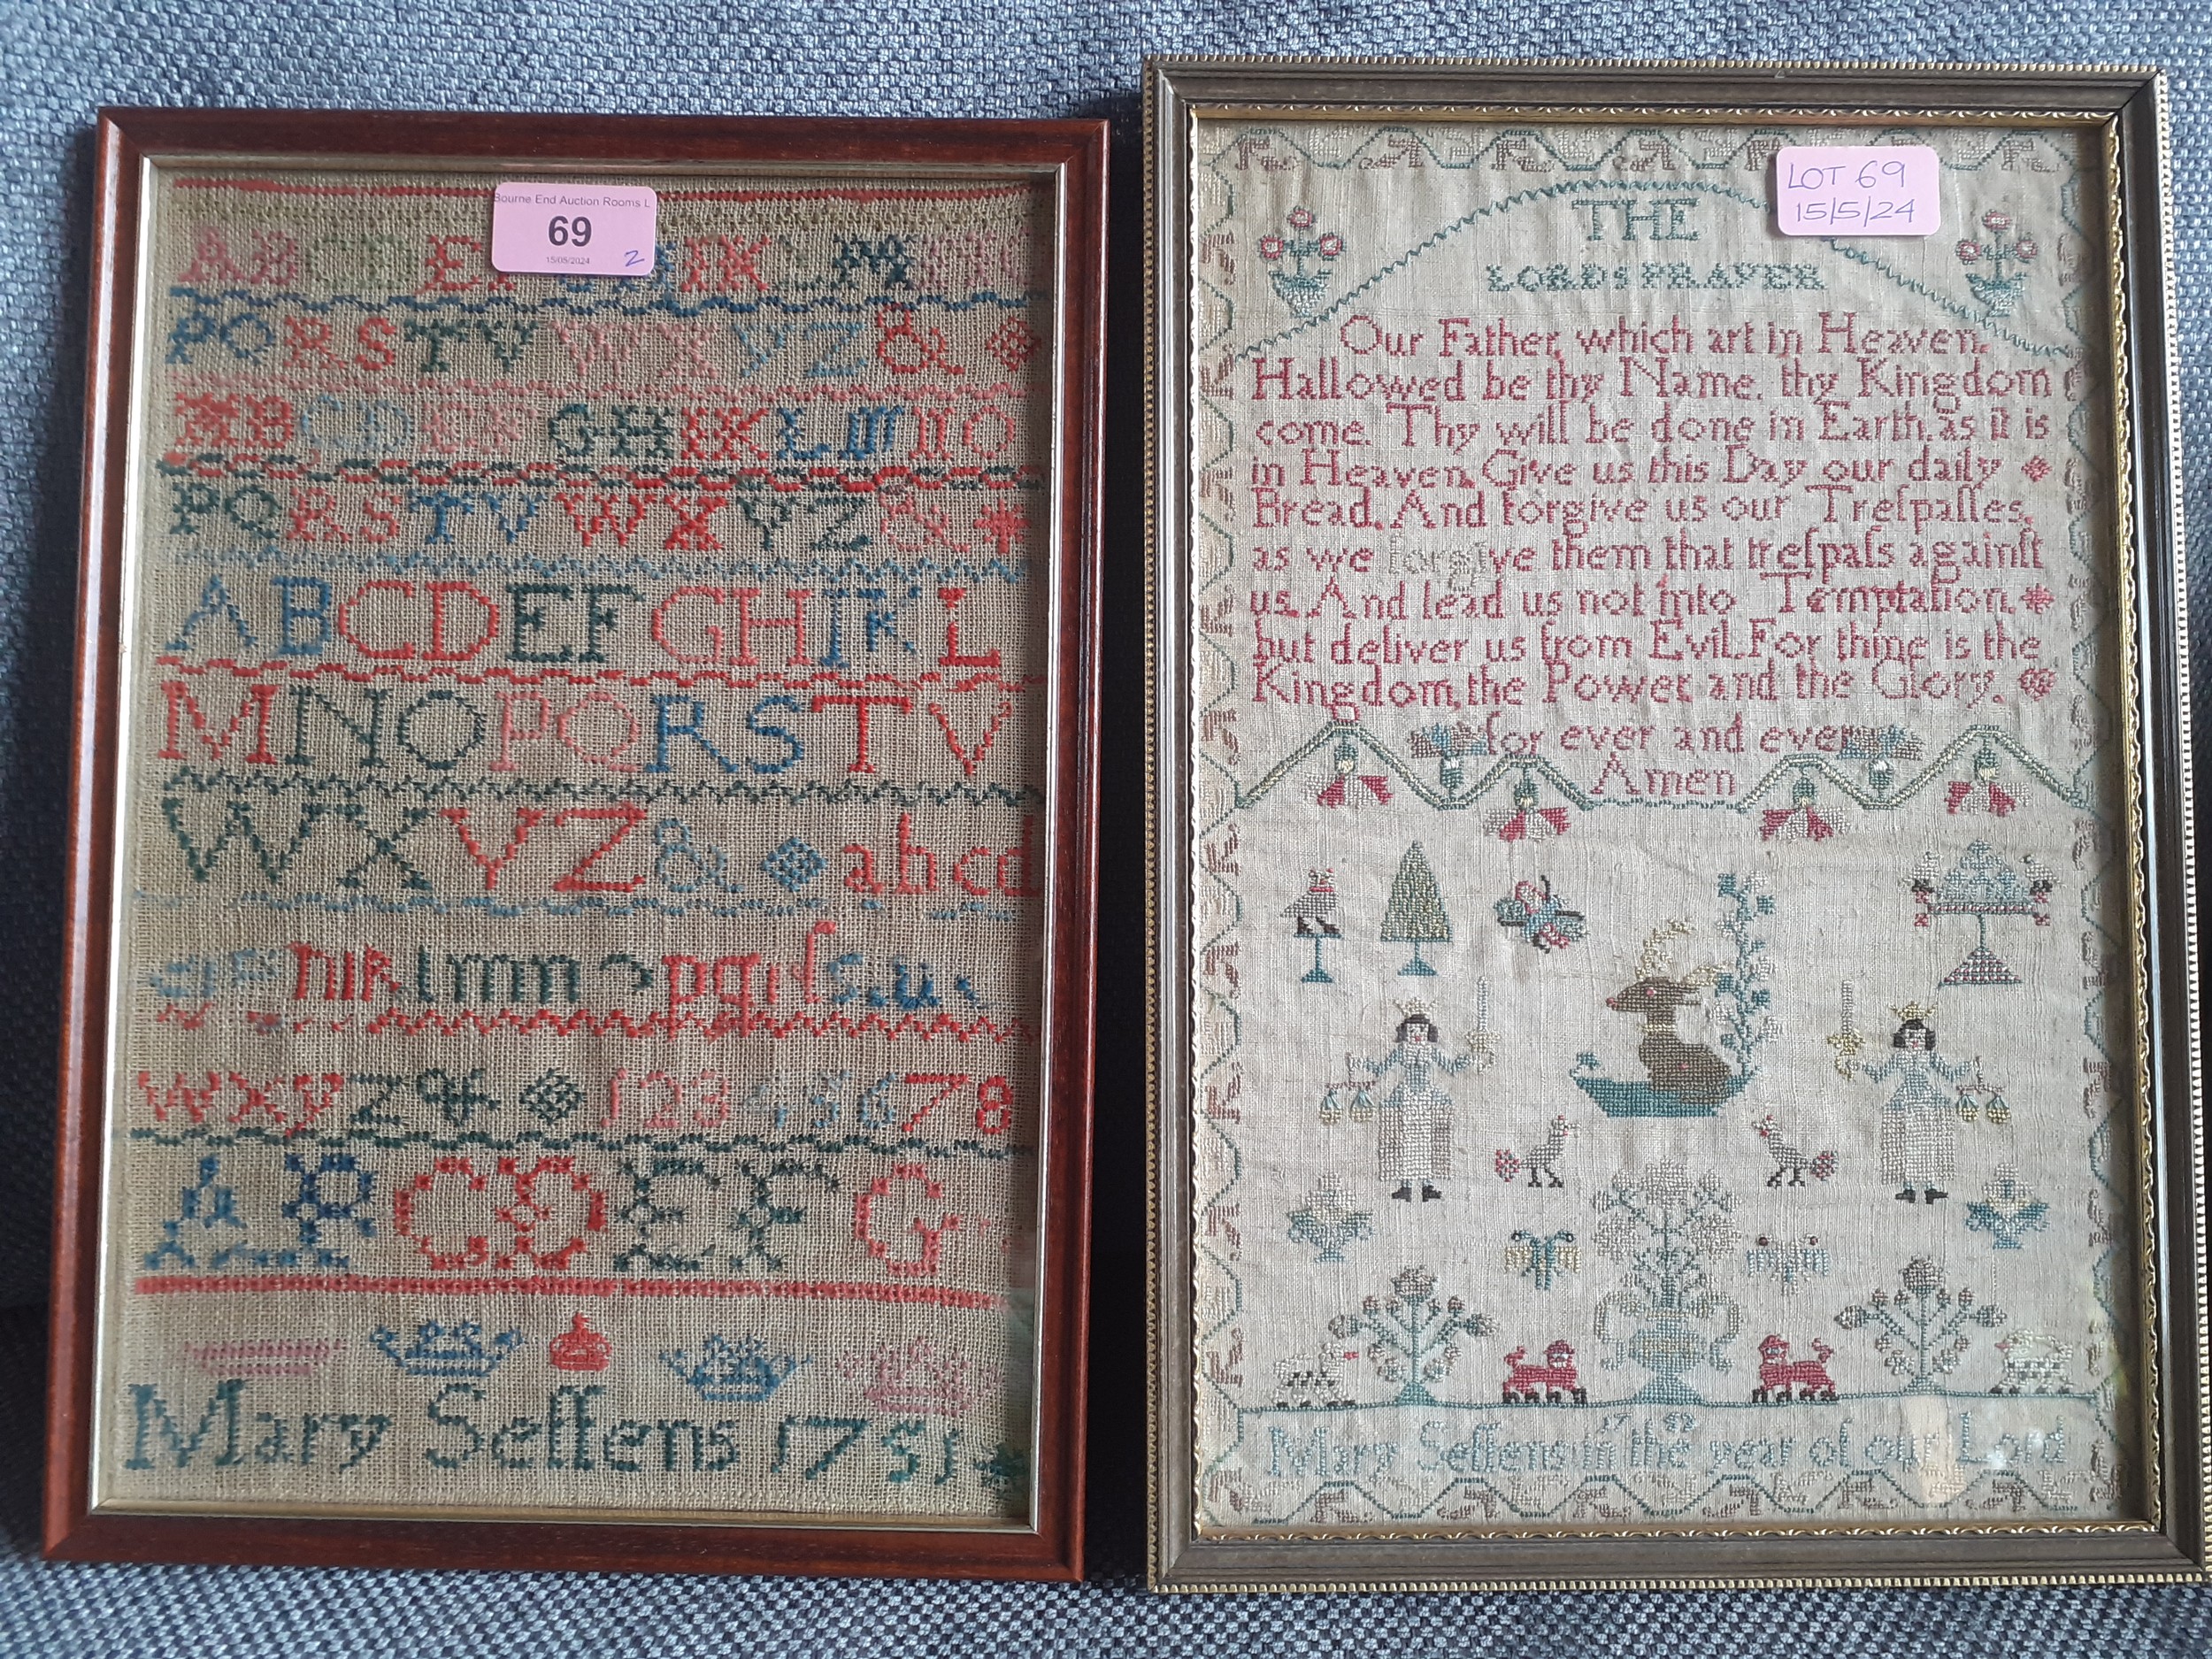 Bourne End Auction Rooms L
69
15/05/2024
2
PQRSTVWXYZ&
ABCDEFGHIKLMNO
PQRSTVWXYZ&
ABCDEFGHIKL
MNOPQRSTV
WXYZ& abcd
wxyz& 12345678
ABCDEFG
Mary Seſſens 1751
LOT 69
15/5/24
THE
LORDS PRAYER
Our Father, which art in Heaven.
Hallowed be thy Name. thy Kingdom
come. Thy will be done in Earth, as it is
in Heaven. Give us this Day our daily
Bread. And forgive us our Treſpaſſes.
as we forgive them that treſpaſs againſt
us. And lead us not into Temptation.
but deliver us from Evil. For thine is the
Kingdom, the Power and the Glory.
for ever and ever
Amen
Mary Seſſens in the year of our Lord